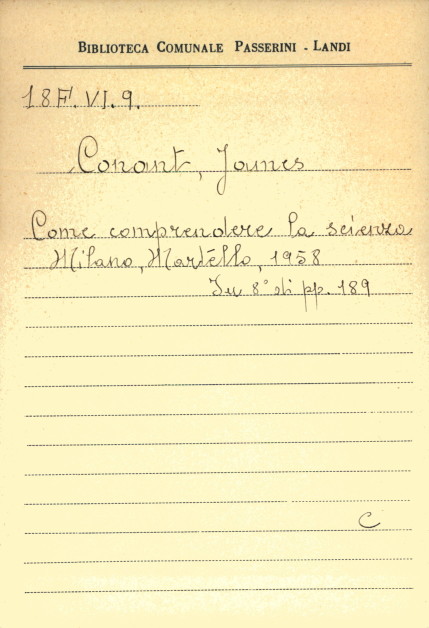 BIBLIOTECA COMUNALE PASSERINI - LANDI
18 F'. VI. 9.
Conant, James
Come comprendere la scienza
Milano, Martello, 1958
In 8° di pp. 189
C